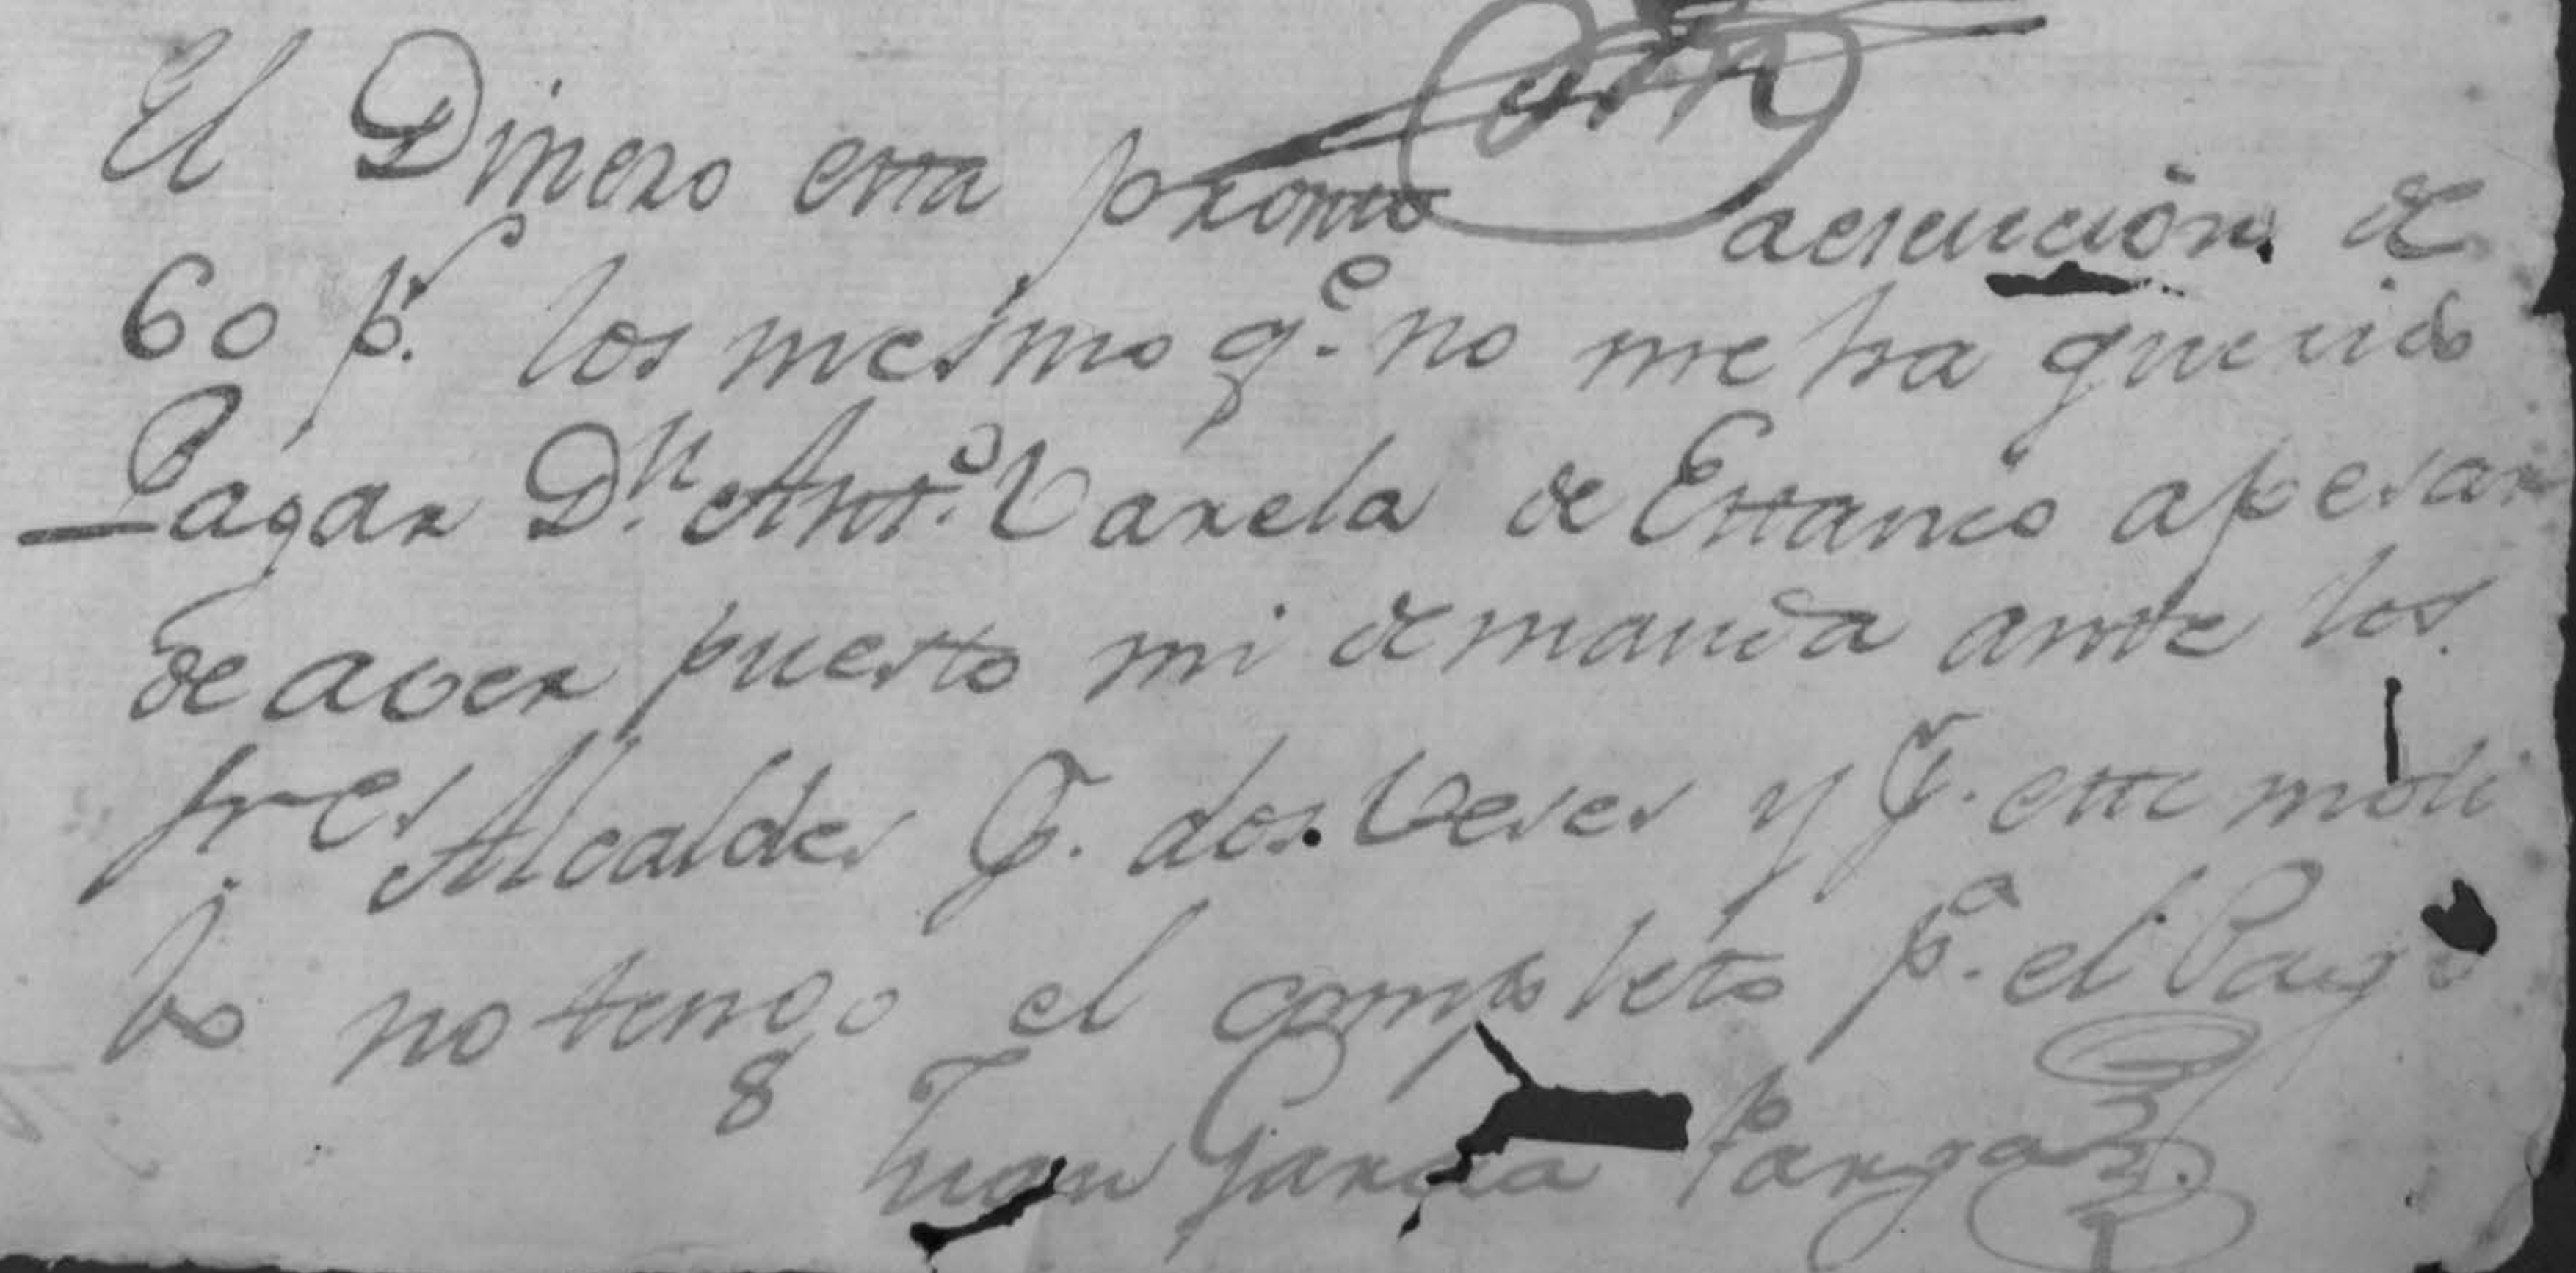 El Dinero esta pronto aesencion de
60 p.s los mesmo q.e no me ha querido
Pagar D.n Ant.o Varela de Estanco apesar
de aver puesto mi demanda ante los
sres Alcaldes P. dos Veses y P. este moti
bo no tengo el completo p.a el Pago
8
Juan Garcia Parga